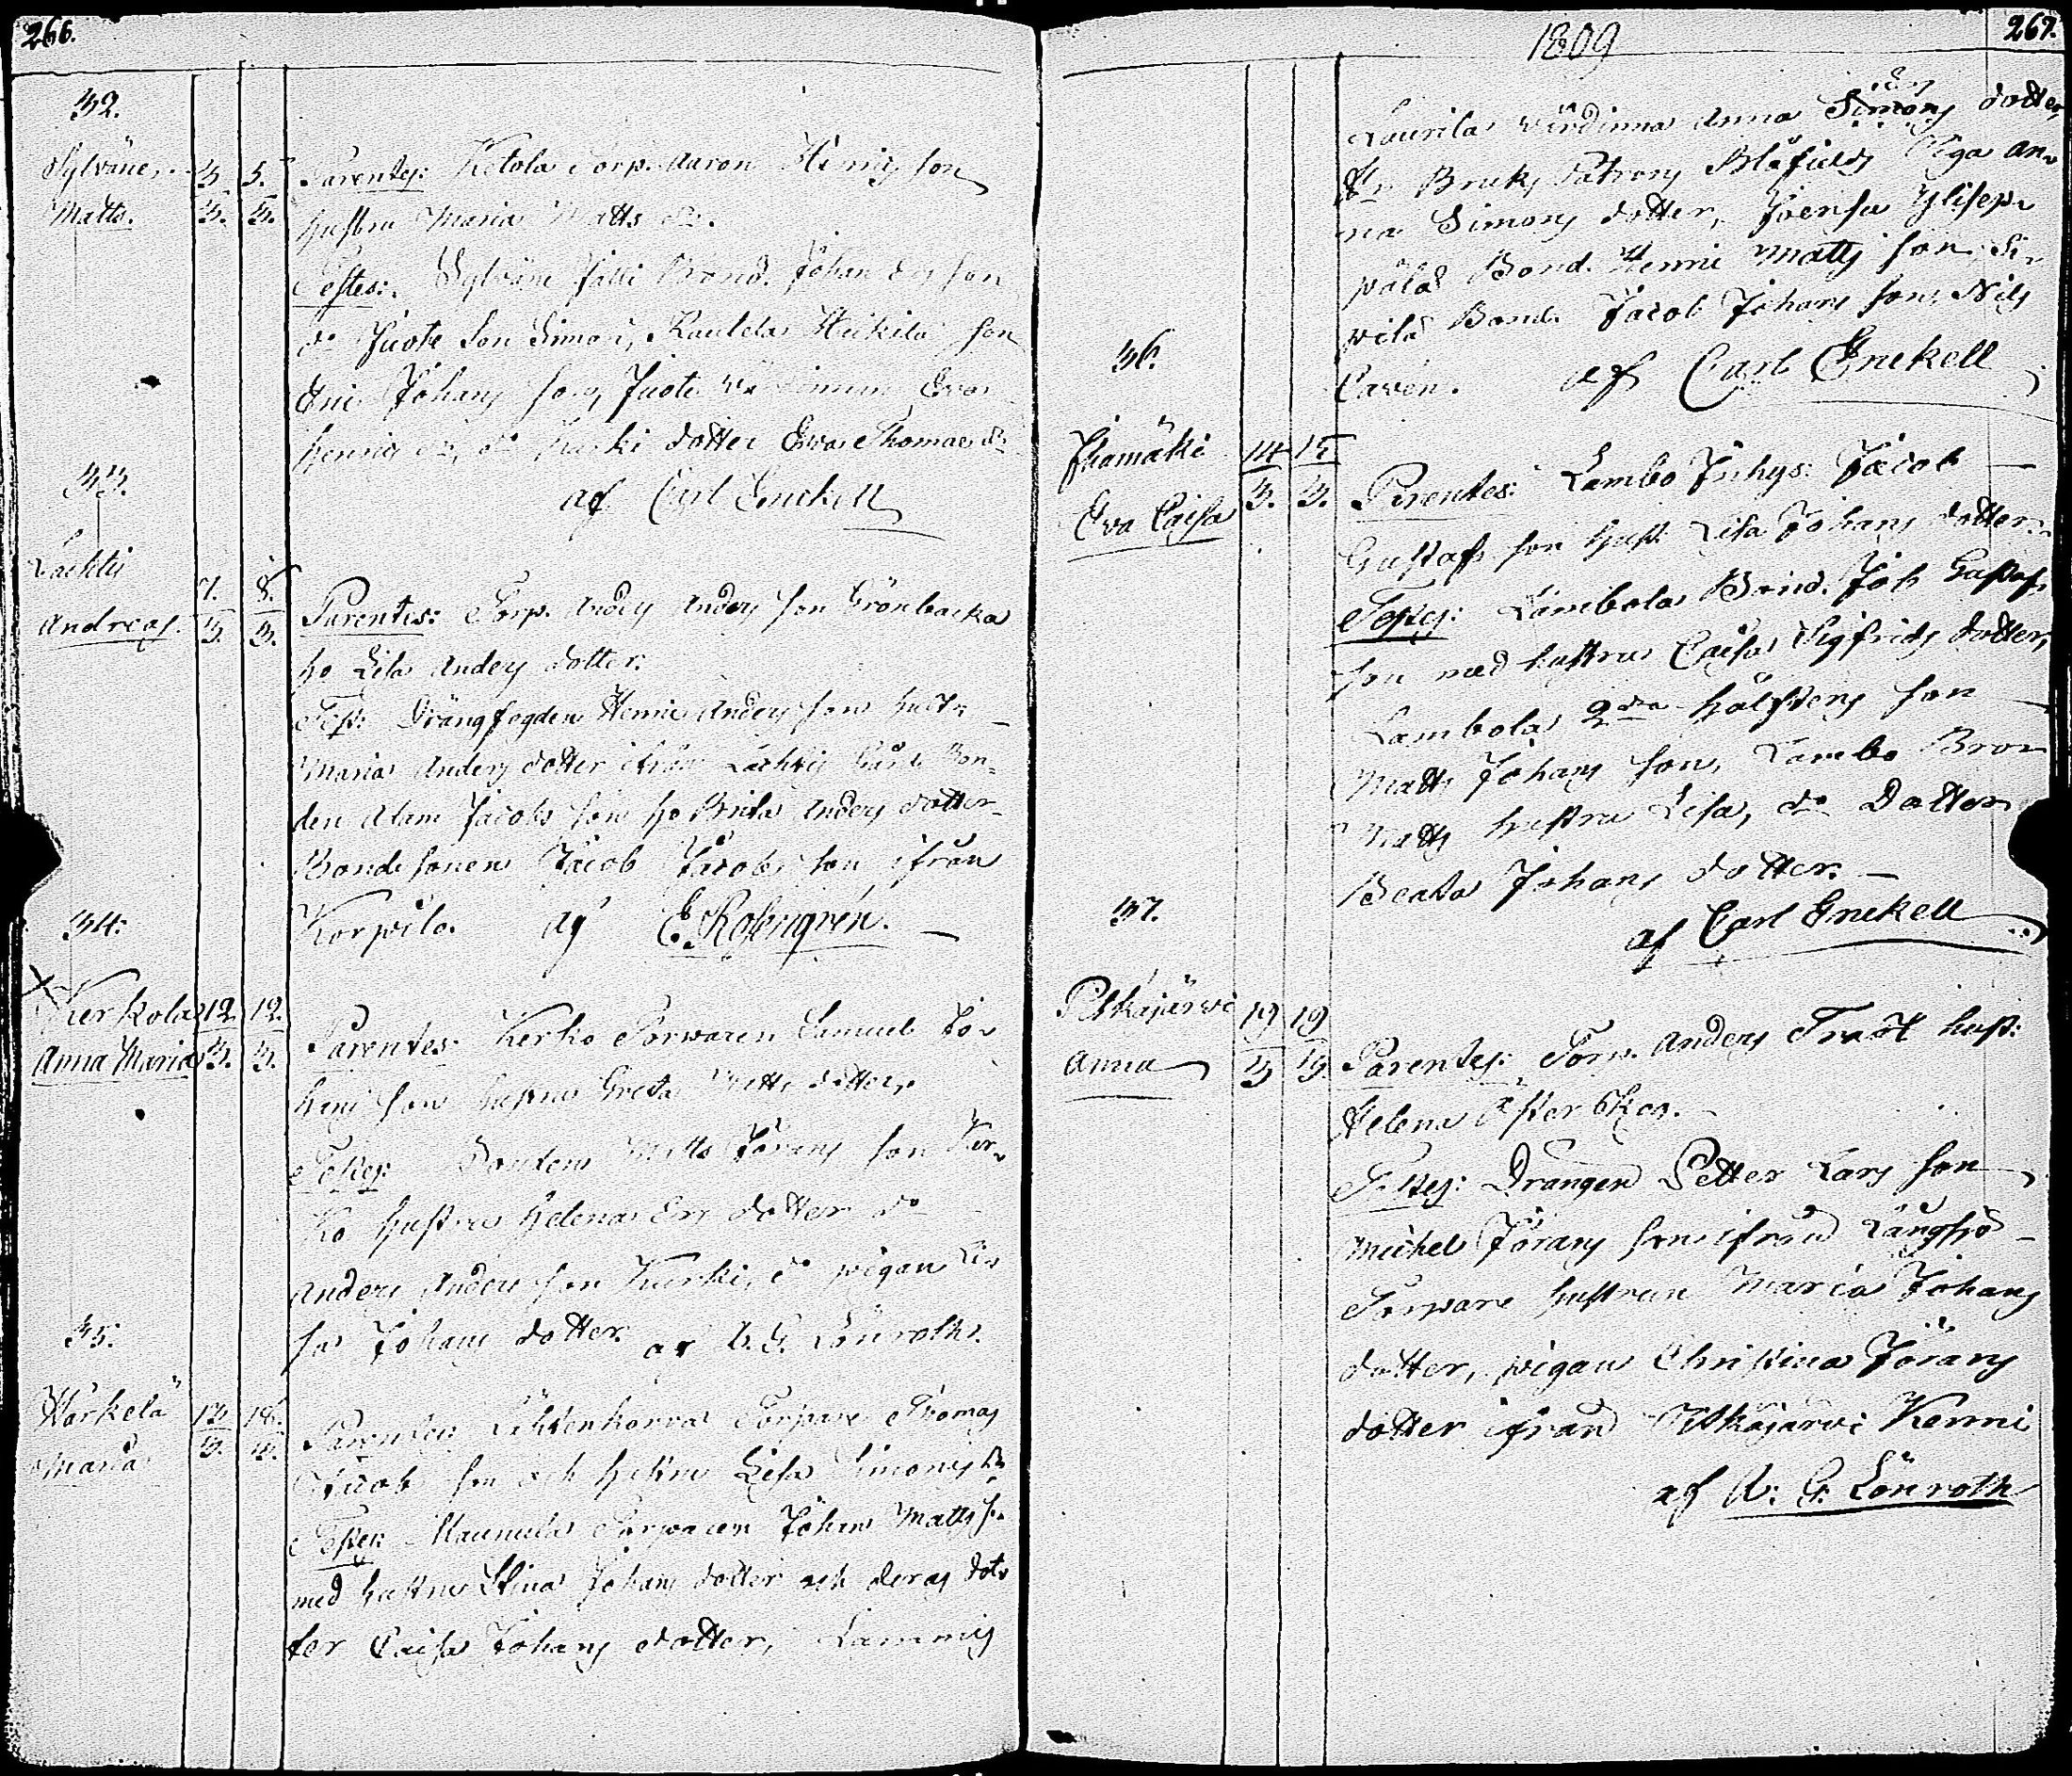 266.
32.
Sylväne,
Matts.
3 5.
3. 3.
Parentes: Ketola Torp. Aaron Henrigs son
hustru Maria Matts dr.
Testes: Sylväne Bond. Johan Ers son
do Juote son Simon, Rautela Heikilä son
Eric Johans son, Juote Eva
Henrics dr, do dotter Eva Thomae dr
af Carl Enckell
33.
Lachtis
Andreas.
7. 8.
3. 3.
Parentes: Torp. Anders Anders son Grönbacka
ho Lisa Anders dotter.
Test: Drängfogden Henric Anders son hustr
Maria Anders dotter ifrån Lachtis Gård. Bon-
den Adam Jacobs son ho Brita Anders dotter
Bondesonen Jacob Jacobs son ifrån
Korpila. af E. Rosengrén.
34.
Kerkola
Anna Maria
12. 12.
3. 3.
Parentes: Kerko Torparen Samuel Jo-
hans son hustru Greta Matts dotter.
Testes: Bonden Matts Jörans son Ker-
ko hustru Helena Ers dotter do
Anders Anders son Kurki, do pigan Li-
sa Johans dotter. af A. G. Lönroth.
35.
Härkelä
Maria
13. 16.
3. 3.
Parentes: Torpare Thomas
Jacobs son och hustru Lisa Simons dr
Testes: Maunula Torparen Johan Matts s.
med hustru Stina Johans dotter och deras dot-
ter Caisa Johans dotter, Lammis
1809
267.
Laurila värdinna Anna Simons dotter,
Ers
Hr Bruks Patrons Blåfields Piga An-
na Simons dotter, Joensu Ylisep-
pälä Bond. Henric Matts son, Si-
pilä Bond. Jacob Johans son, Nils
Cavén. af Carl Enckell
36.
Jhamäki
Eva Caisa
14 15
3. 3.
Parentes: Lambo Inhys: Jacob
Gustafs son hust: Lisa Johans dotter.
Testes: Lambola Bond. Joh Gustafs
son med hustru Caisa Sigfrids dotter,
Lambola 2dra hälftens son
Matts Johans son, Lambo Bror
Matts hustru Lisa, do Dotter
Beata Johans dotter.
af Carl Enckell
37.
Pitkäjärvi
Anna
19 19
3 3.
Parentes: Torp. Anders Trast hust:
Helena Efterskog.
Testes: Drängen Petter Lars son
Michel Jörans son ifrån Långsjö
Torpare hustrun Maria Johans
dotter, pigan Christina Jörans
dotter ifrån Pitkäjärvi Kenni
af A: G. Lönroth